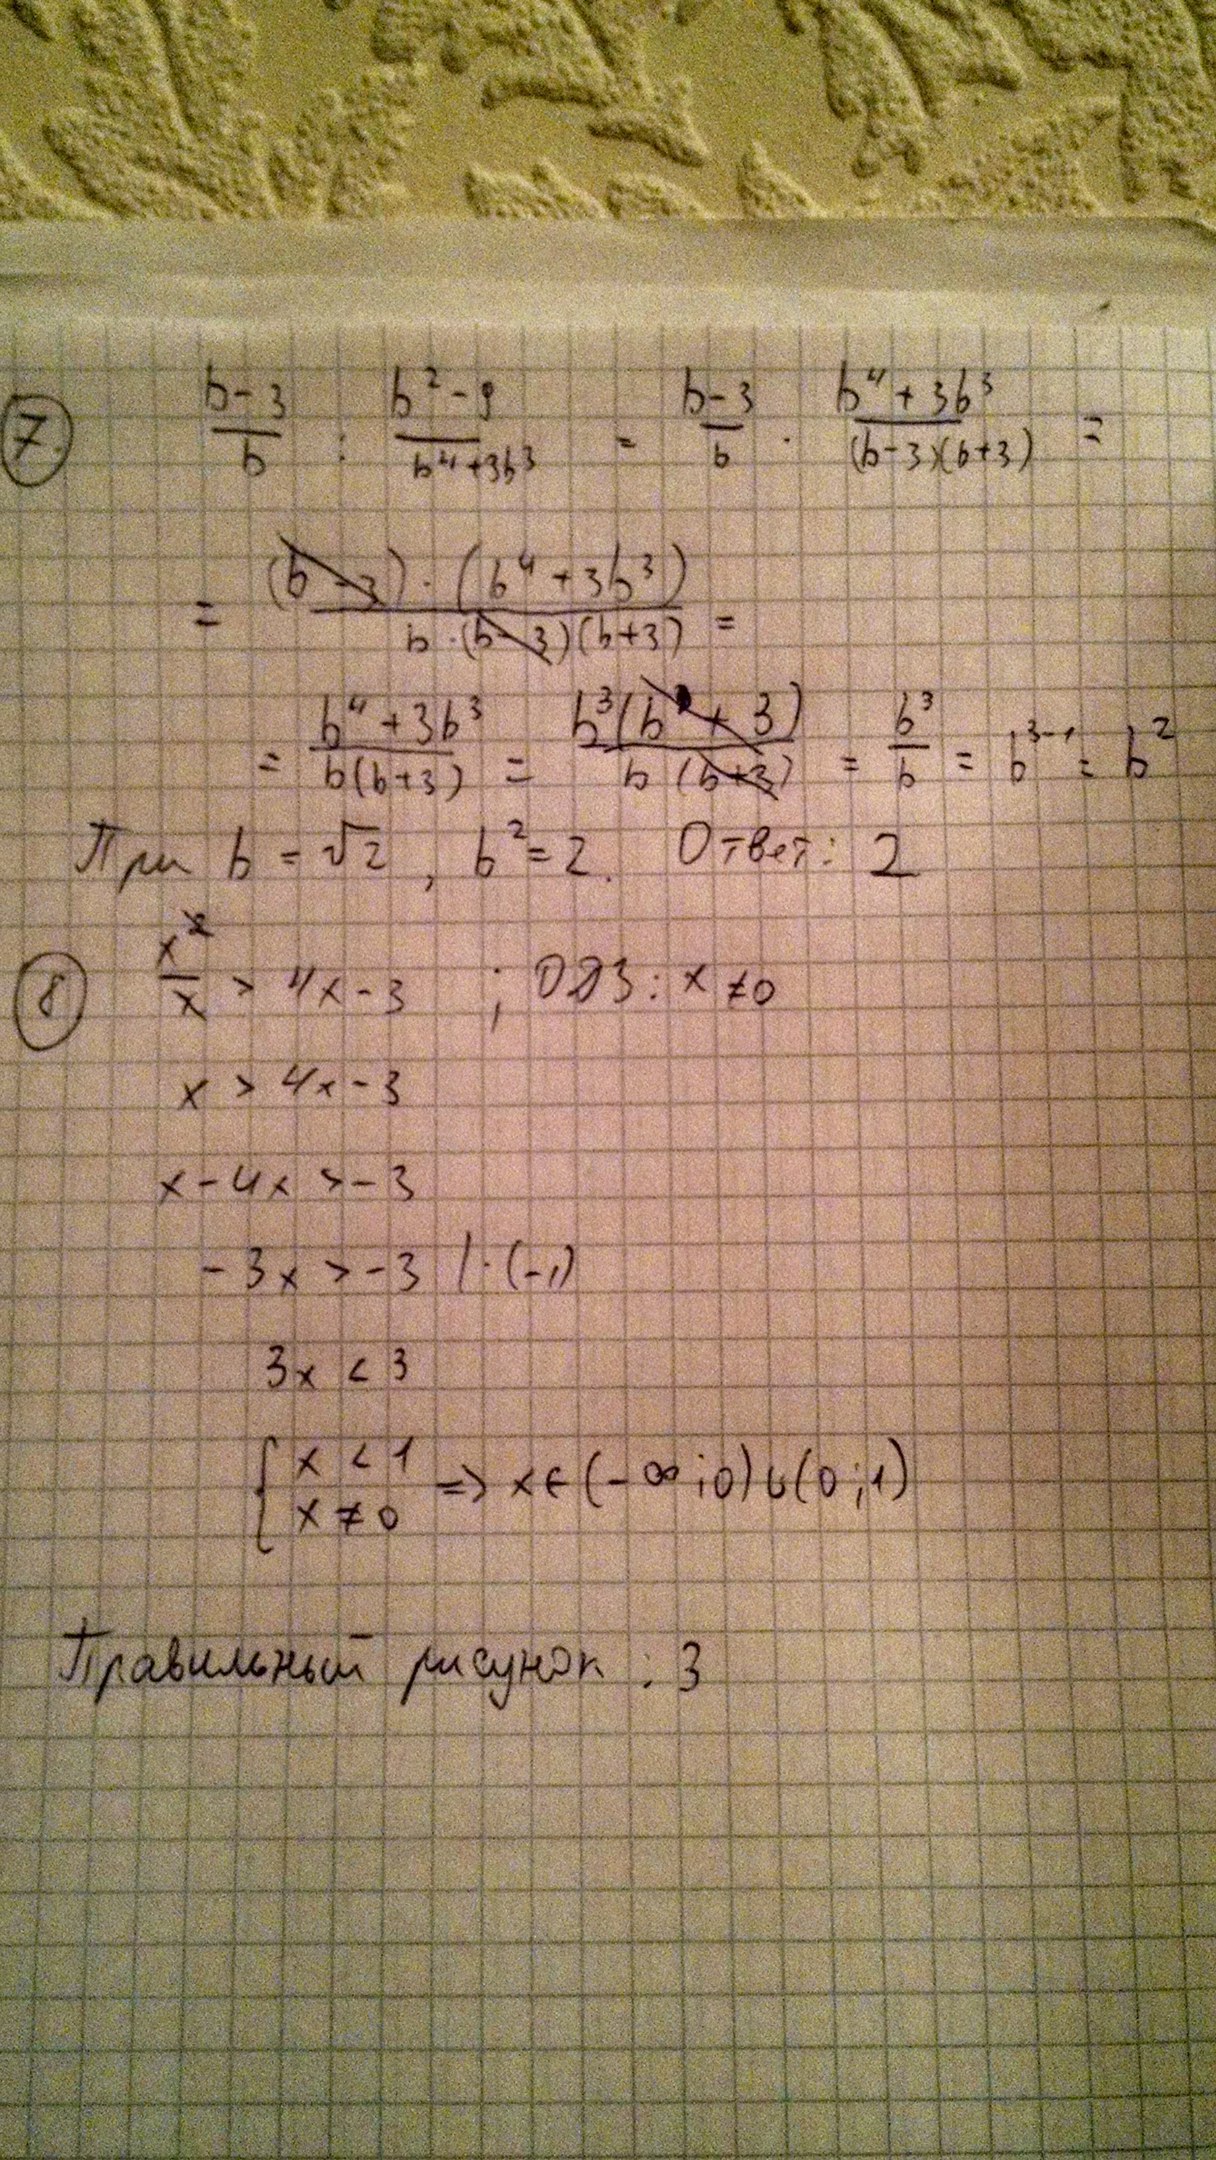 7. (b-3)/b : (b²-9)/(b⁴+3b³) = (b-3)/b · (b⁴+3b³)/((b-3)(b+3)) =
= ((b-3)·(b⁴+3b³))/(b·(b-3)(b+3)) =
= (b⁴+3b³)/(b(b+3)) = (b³(b+3))/(b(b+3)) = b³/b = b³⁻¹ = b²
При b = √2, b² = 2. Ответ: 2
8 x²/x > 4x-3 ; ОДЗ: x ≠ 0
x > 4x-3
x-4x > -3
-3x > -3 | ·(-1)
3x < 3
{ x < 1
x ≠ 0 => x∈(-∞;0)∪(0;1)
Правильный рисунок: 3